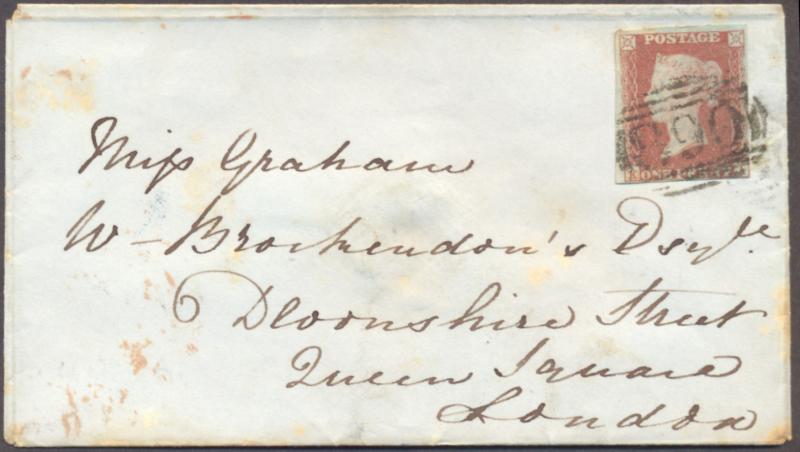 POSTAGE
Miss Graham
W - Brockendon's Esqre
6 Devonshire Street
Queen Square
London